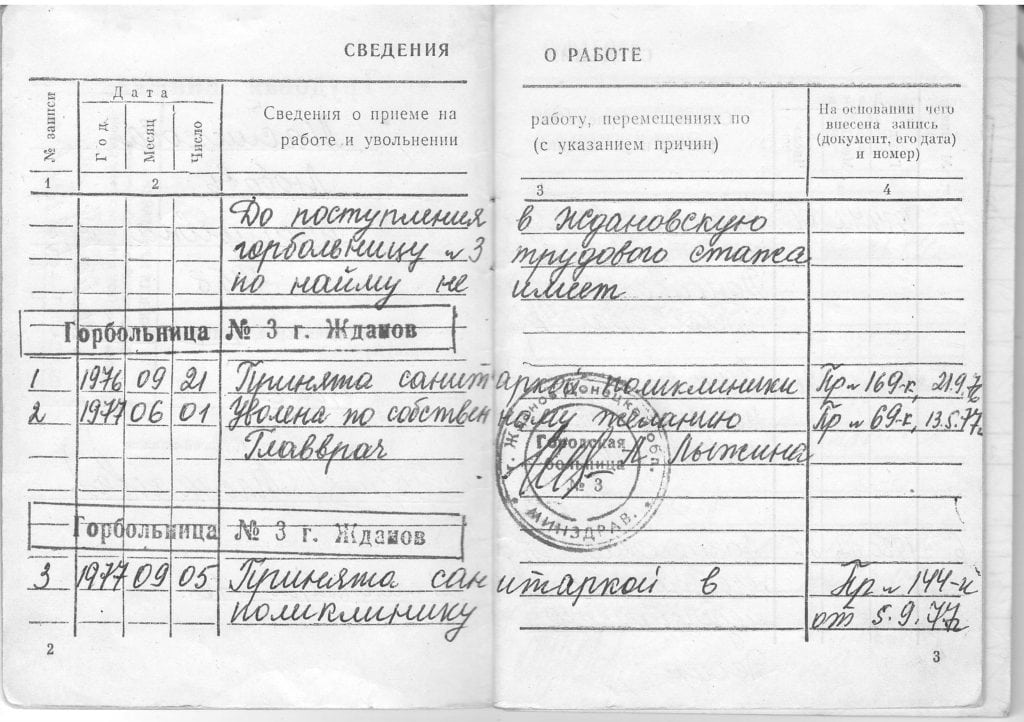 СВЕДЕНИЯ О РАБОТЕ
№ записи
Дата
Год.
Месяц
Число
Сведения о приеме на
работе и увольнении
работу, перемещениях по
(с указанием причин)
На основании чего
внесена запись
(документ, его дата)
и номер)
1 2 3 4
До поступления в Ждановскую
горбольницу № 3 трудового стажа
по найму не имеет
Горбольница № 3 г. Жданов
1 1976 09 21 Принята санитаркой поликлиники Пр № 169-к, 21.9.76
2 1977 06 01 Уволена по собственному желанию Пр № 69-к, 13.5.77г
Главврач Лыжина
г. Жданов Донецкой обл.
Городская
больница
№ 3
МИНЗДРАВ.
Горбольница № 3 г. Жданов
3 1977 09 05 Принята санитаркой в Пр № 144-й
поликлинику от 5.9.77г
2 3